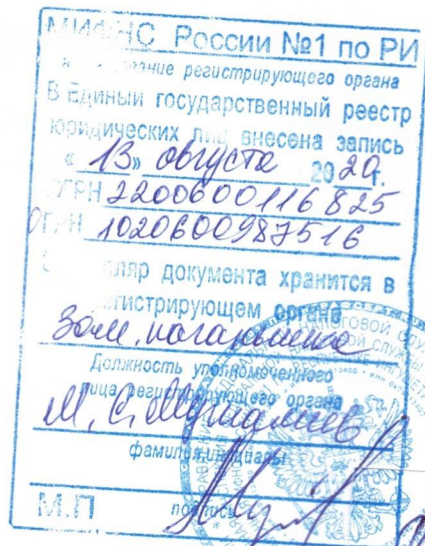 МИФНС России №1 по РИ
регистрирующего органа
В Единый государственный реестр
юридических лиц внесена запись
« 13» августа 2020г.
ГРН 2200600116825
ОГРН 1020600987516
документа хранится в
регистрирующем органе
Зам. начальника
Должность уполномоченного
лица регистрирующего органа
М. С.
фамилия, инициалы
подпись
М.П